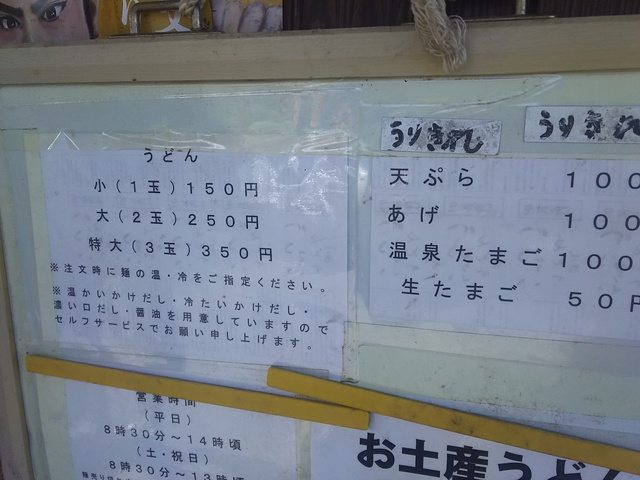 うどん
小(1玉)150円
大(2玉)250円
特大(3玉)350円
※注文時に麺の温・冷をご指定ください。
※温かいかけだし・冷たいかけだし・
濃い口だし・醤油を用意していますので
セルフサービスでお願い申し上げます。
うりきれ
うりきれ
天ぷら 100
あげ 100
温泉たまご 100
生たまご 50円
営業時間
(平日)
8時30分〜14時頃
(土・祝日)
8時30分〜13時頃
お土産うどん